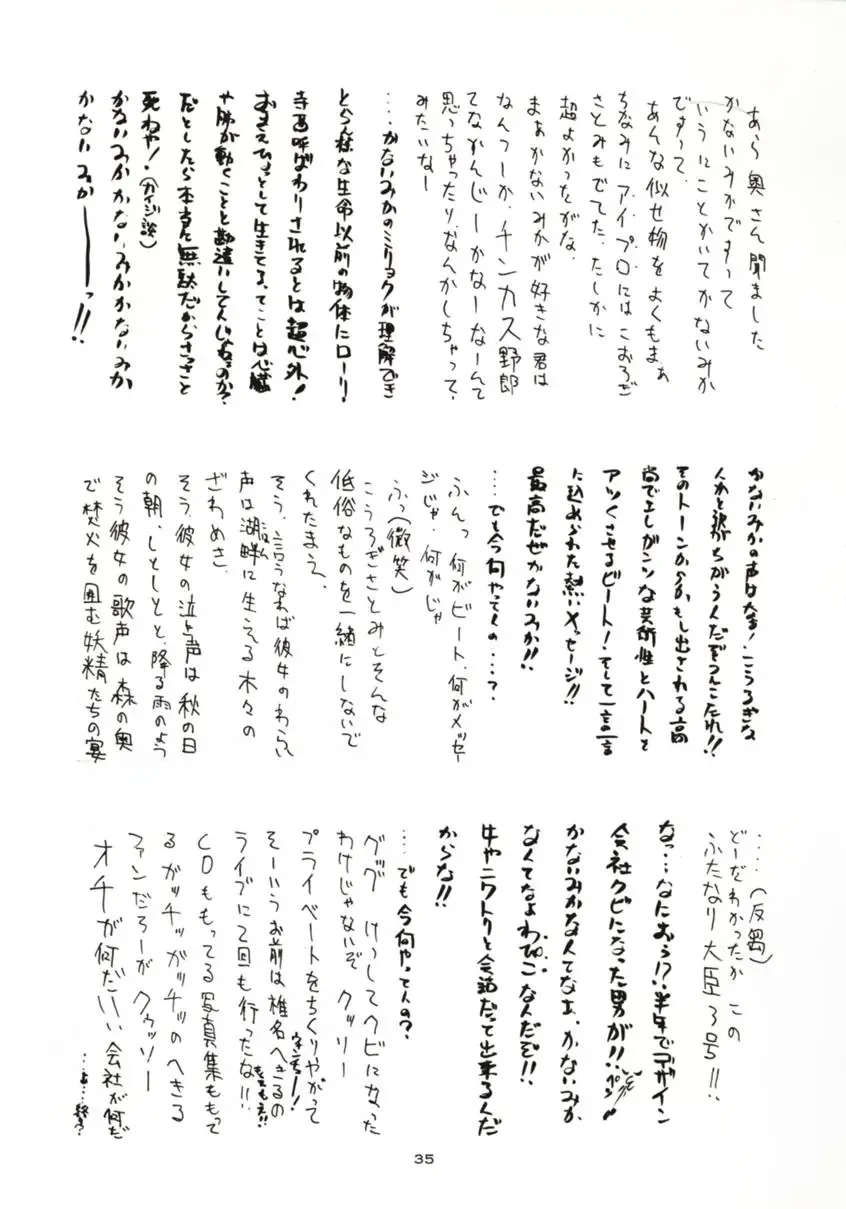 あら奥さん聞ました
かないみかですって
いうにことかいてかないみか
ですって、
あんな似せ物をよくもまぁ
ちなみにア・イ・プロにはこおろぎ
さとみもでてた、たしかに
超よかったがな、
まぁかないみかが好きな君は
なんつーか、チンカス野郎
てなかんじーかなーなーんて
思っちゃったり、なんかしちゃって、
みたいなー
‥‥かないみかのミリョクが理解でき
とらん様な生命以前の物体にローリー
呼ばわりされるとは超心外!
おまえひょっとして生きてるってことは心臓
や肺が動くことと勘違いしてんじゃねーのか?
だとしたら本当に無駄だからさっさと
死ねや!(カイジ談)
かないみかかないみかかないみか
かないみかーーーっ!!
かないみかの声はなぁ!こうろぎな
んかと訳がちがうんだぞうんこたれ!!
そのトーンからかもし出される高
尚でエレガンツな芸術性とハートを
アツくさせるビート!そして一言一言
に込められた熱いメッセージ!!
最高だぜかないみか!!
‥‥でも今何やってんの‥‥?
ふんっ 何がビート、何がメッセー
ジじゃ、何がじゃ
ふっ(微笑)
こうろぎさとみとそんな
低俗なものを一緒にしないで
くれたまえ、
そう、言うなれば彼女のわらい
声は湖畔に生える木々の
ざわめき、
そう、彼女の泣き声は秋の日
の朝、しとしとと、降る雨のよう
そう彼女の歌声は森の奥
で焚火を囲む妖精たちの宴
‥‥(反芻)
どーだわかったか この
ふたなり大臣3号!!
なっ‥‥なにおぅ!?半年でデザイン
会社クビになった男が!!
かないみかなくてなぁ、かないみか
なくてなよわぴこなんだぞ!!
牛やニワトリと会話だって出来るんだ
からな!!
‥‥でも今何やってんの?
グッグ けっしてクビになった
わけじゃないぞ クッソー
プライベートをちくりやがって
そーいうお前は椎名へきるの
ライブに2回も行ったな!!
CDももってる写真集ももって
るガッチッガッチッのへきる
ファンだろーが クゥッソー
オチが何だいい会社が何だ
‥‥よ‥‥終る?
35